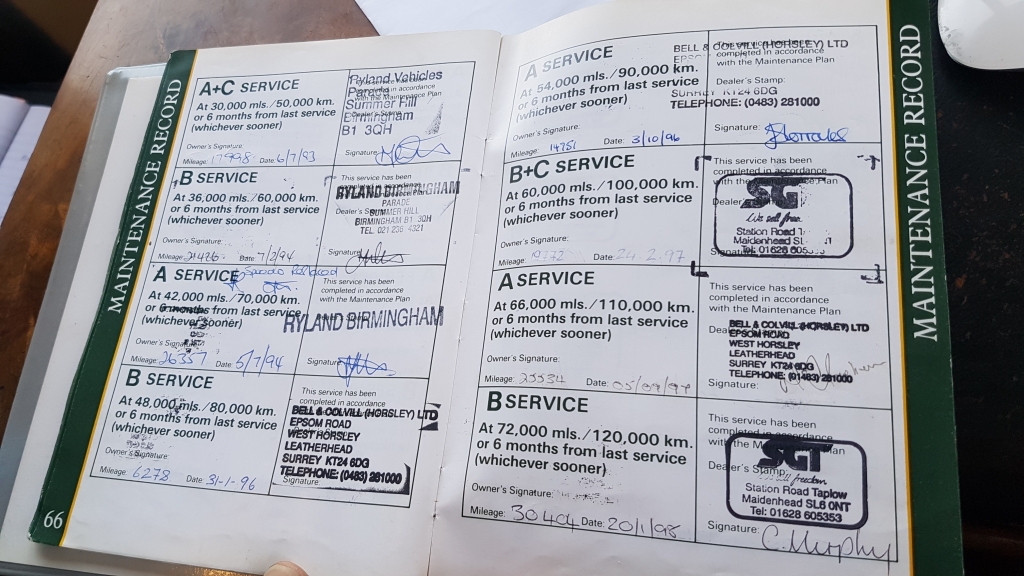 MAINTENANCE RECORD
66
A+C SERVICE
At 30,000 mls./50,000 km.
or 6 months from last service
(whichever sooner)
Owner's Signature:
Mileage: 17998 Date: 6/7/93
Ryland Vehicles
Parade
Summer Hill
Birmingham
B1 3QH
Signature:
B SERVICE
At 36,000 mls./60,000 km.
or 6 months from last service
(whichever sooner)
Owner's Signature:
Mileage: Date: 7/2/94
This service has been
completed in accordance
RYLAND BIRMINGHAM
PARADE
SUMMER HILL
BIRMINGHAM B1 3QH
TEL. 021 236 4321
Signature:
A SERVICE
At 42,000 mls./70,000 km.
or 6 months from last service
(whichever sooner)
Owner's Signature:
Mileage: 26357 Date: 5/7/94
This service has been
completed in accordance
with the Maintenance Plan
RYLAND BIRMINGHAM
Signature:
B SERVICE
At 48,000 mls./80,000 km.
or 6 months from last service
(whichever sooner)
Owner's Signature:
Mileage: 6278 Date: 31-1-96
This service has been
completed in accordance
BELL & COLVILL (HORSLEY) LTD
EPSOM ROAD
WEST HORSLEY
LEATHERHEAD
SURREY KT24 6DG
TELEPHONE: (0483) 281000
Signature:
A SERVICE
At 54,000 mls./90,000 km.
or 6 months from last service
(whichever sooner)
Owner's Signature:
Mileage: 14751 Date: 3/10/96
BELL & COLVILL (HORSLEY) LTD
completed in accordance
with the Maintenance Plan
Dealer's Stamp:
SURREY KT24 6DG
TELEPHONE: (0483) 281000
Signature:
B+C SERVICE
At 60,000 mls./100,000 km.
or 6 months from last service
(whichever sooner)
Owner's Signature:
Mileage: Date: 24.2.97
This service has been
completed in accordance
with the Maintenance Plan
SGT
We sell freedom
Station Road
Maidenhead
Tel: 01628
A SERVICE
At 66,000 mls./110,000 km.
or 6 months from last service
(whichever sooner)
Owner's Signature:
Mileage: 25534 Date: 05/09/97
This service has been
completed in accordance
with the Maintenance Plan
BELL & COLVILL (HORSLEY) LTD
EPSOM ROAD
WEST HORSLEY
LEATHERHEAD
SURREY KT24 6DG
TELEPHONE: (01483) 281000
Signature:
B SERVICE
At 72,000 mls./120,000 km.
or 6 months from last service
(whichever sooner)
Owner's Signature:
Mileage: 30404 Date: 20/1/98
This service has been
completed in accordance
with the Maintenance Plan
SGT
Dealer's Stamp:
freedom
Station Road Taplow
Maidenhead SL6 0NT
Tel: 01628 605353
Signature: C. Murphy
MAINTENANCE RECORD